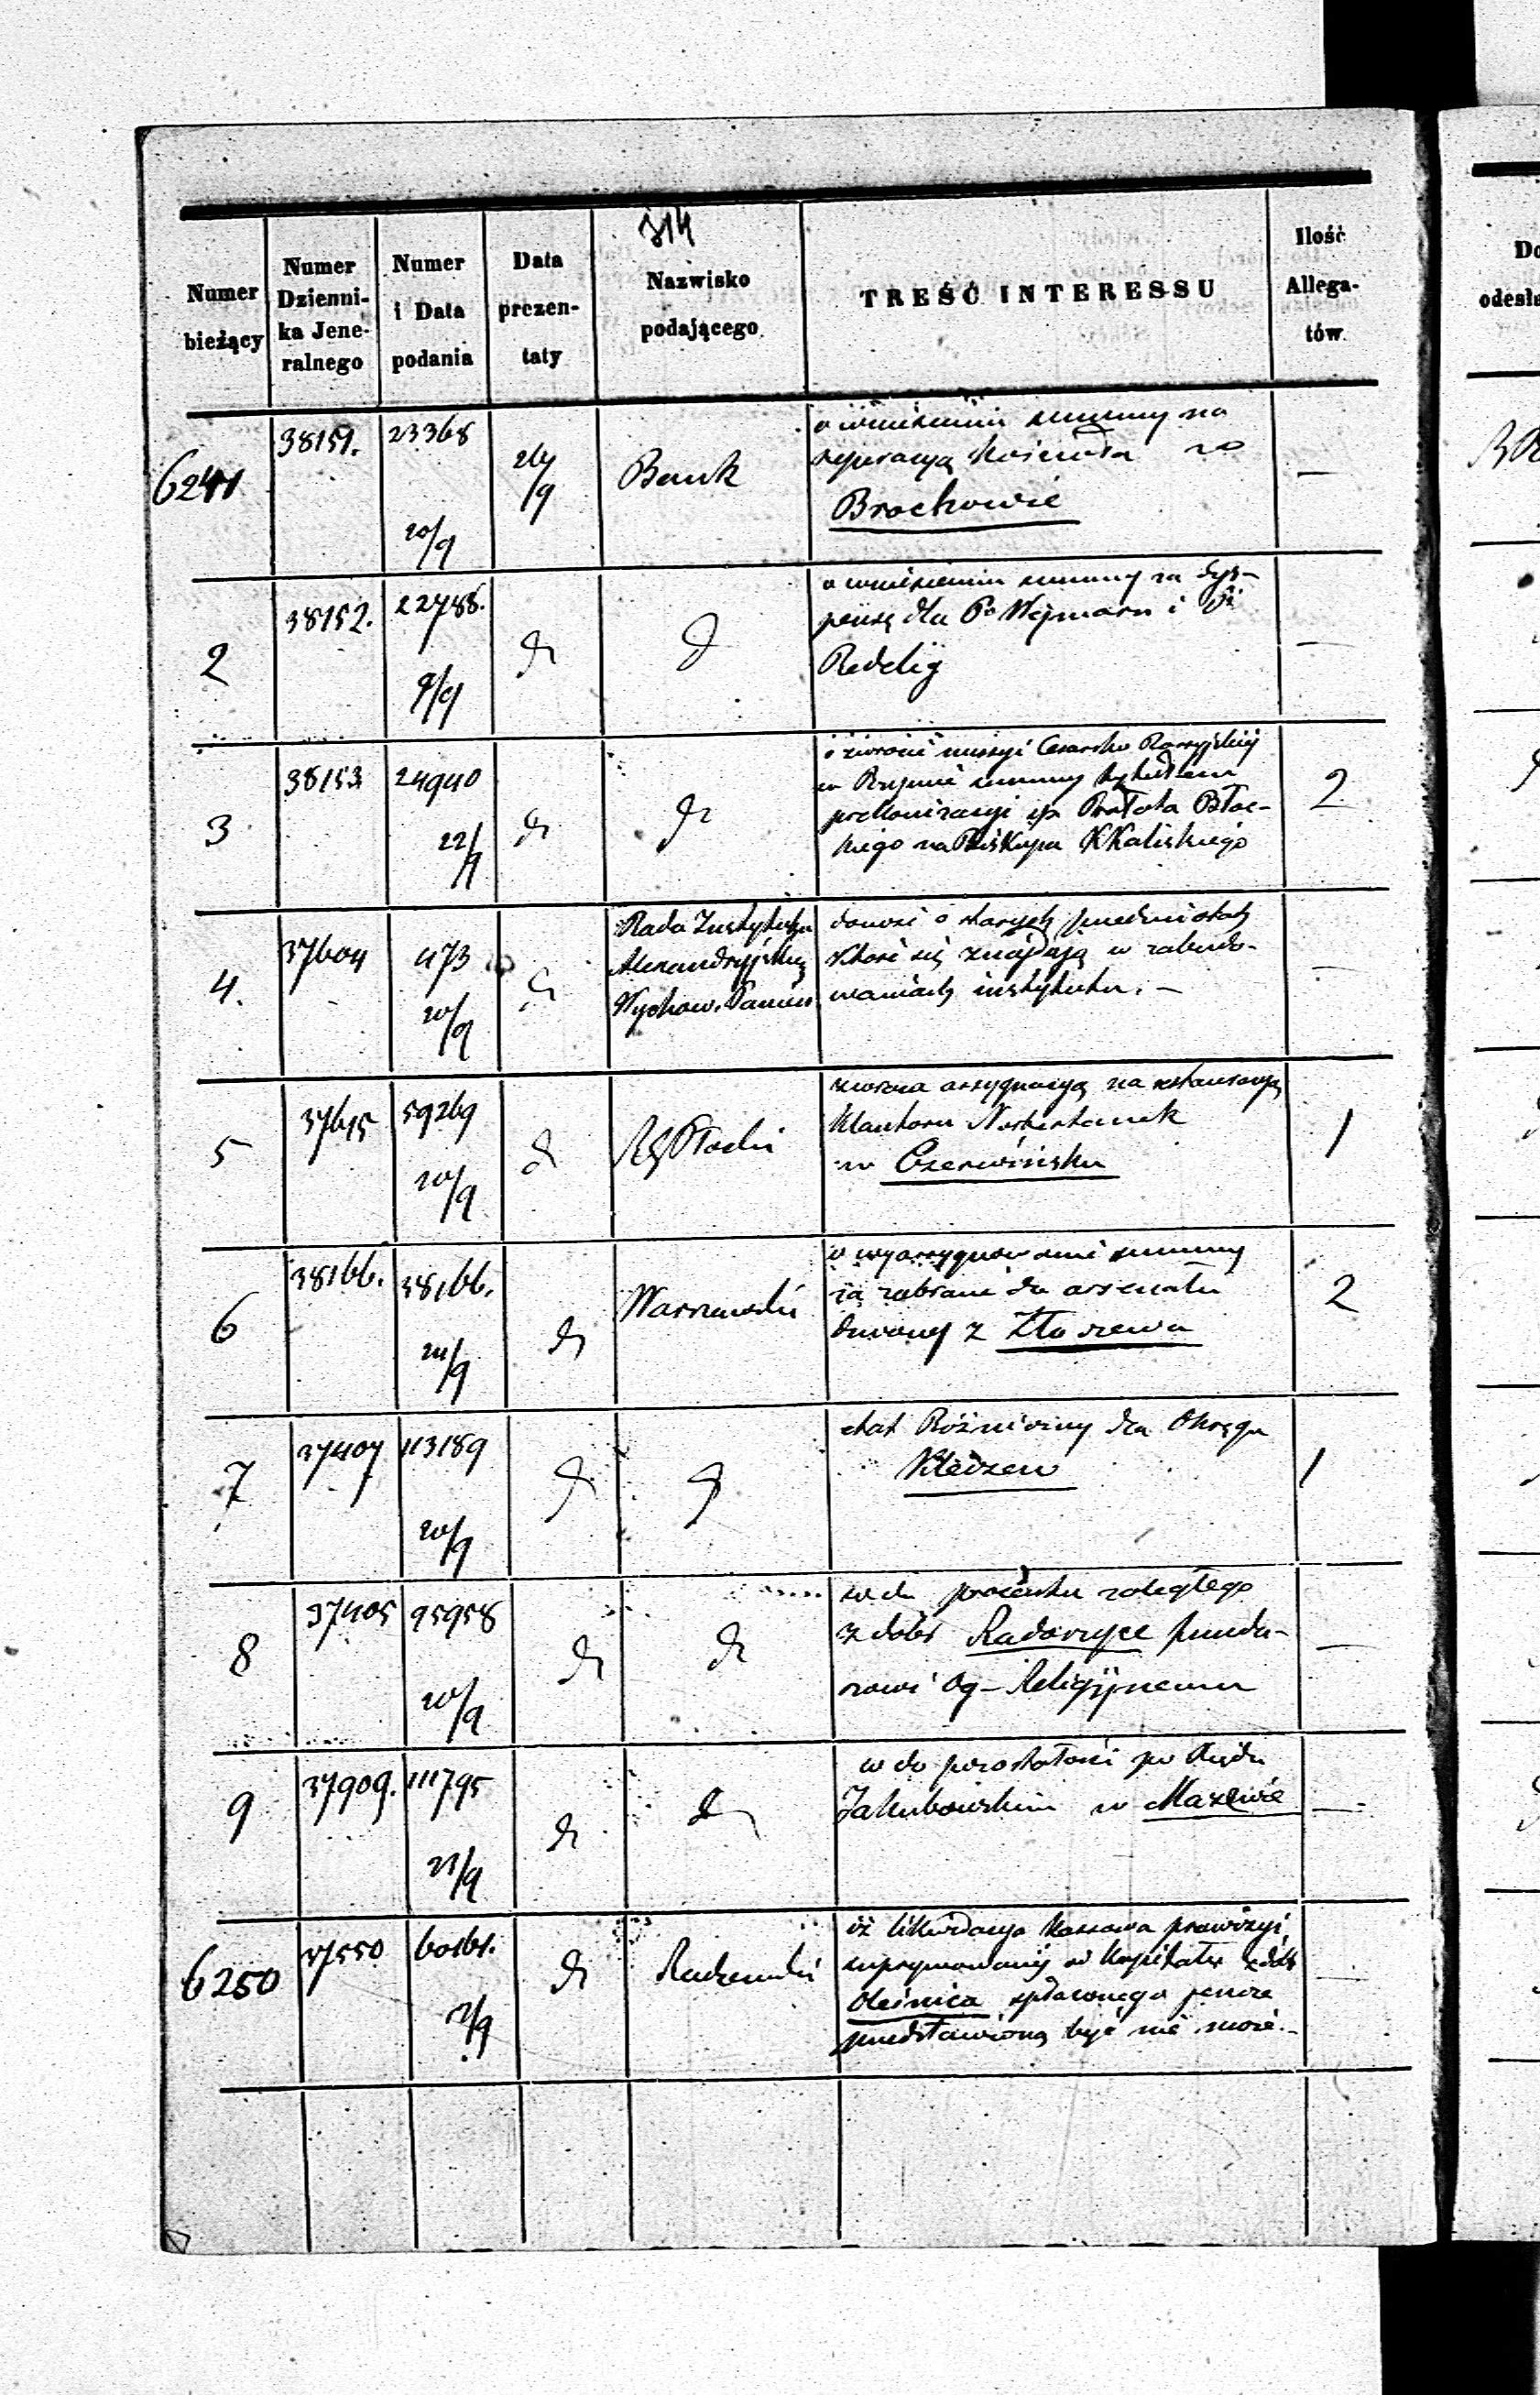 314
Numer bieżący
Numer Dzienni-ka Jene-ralnego
Numer i Data podania
Data prezen-taty
Nazwisko podającego
TREŚĆ INTERESSU
Ilość Allega-tów
6241
38151.
23368
20/9
24/9
Bank
o wniesieniu summy na
reperacyą Kościoła w
Brochowie
—
2
38152.
22788.
9/9
d
d
o wniesieniu summy za dys-
pensę dla Po Wejmarn i
Redelij
—
3
38153
24940
22/9
d
d
o zwrocie missyi Cesarsko Rossyjskiej
w Rzymie summy tytułem
prekonizacyi
na Biskupa KKaliskiego
2
4.
37604
473
20/9
d
Rada Instytutu
Alexandryjskiego
Wychow. Panien
donosi o starych przedmiotach
które się znajdują w zabudo-
waniach instytutu. —
—
5
37615
59269
20/9
d
RG Płocki
zwraca assygnacyą na restauracyą
Klasztoru Norbertanek
w Czerwińsku
1
6
38166.
38166.
20/9
d
Warszawski
o wyassygnowanie summy
za zabrane do arsenału
dzwony z Złoczewa
2
7
37407
113189
20/9
d
d
etat Bóżniczny dla Okręgu
Kleczew
1
8
37405
95958
20/9
d
d
w do procentu zaległego
z dóbr Radoryce fundu-
szowi Og- Religijnemu
—
9
37909.
111795
21/9
d
d
w do pozostałości po Księdzu
Jakubowskim w Mazewie
—
6250
37550
60161.
9
d
Radomski
iż likwidacya Kassowa prowizyi
od Kapitału z dóbr
Oleśnica spłaconego jeszcze
przedstawioną być nie może.—
—
Do
odesła